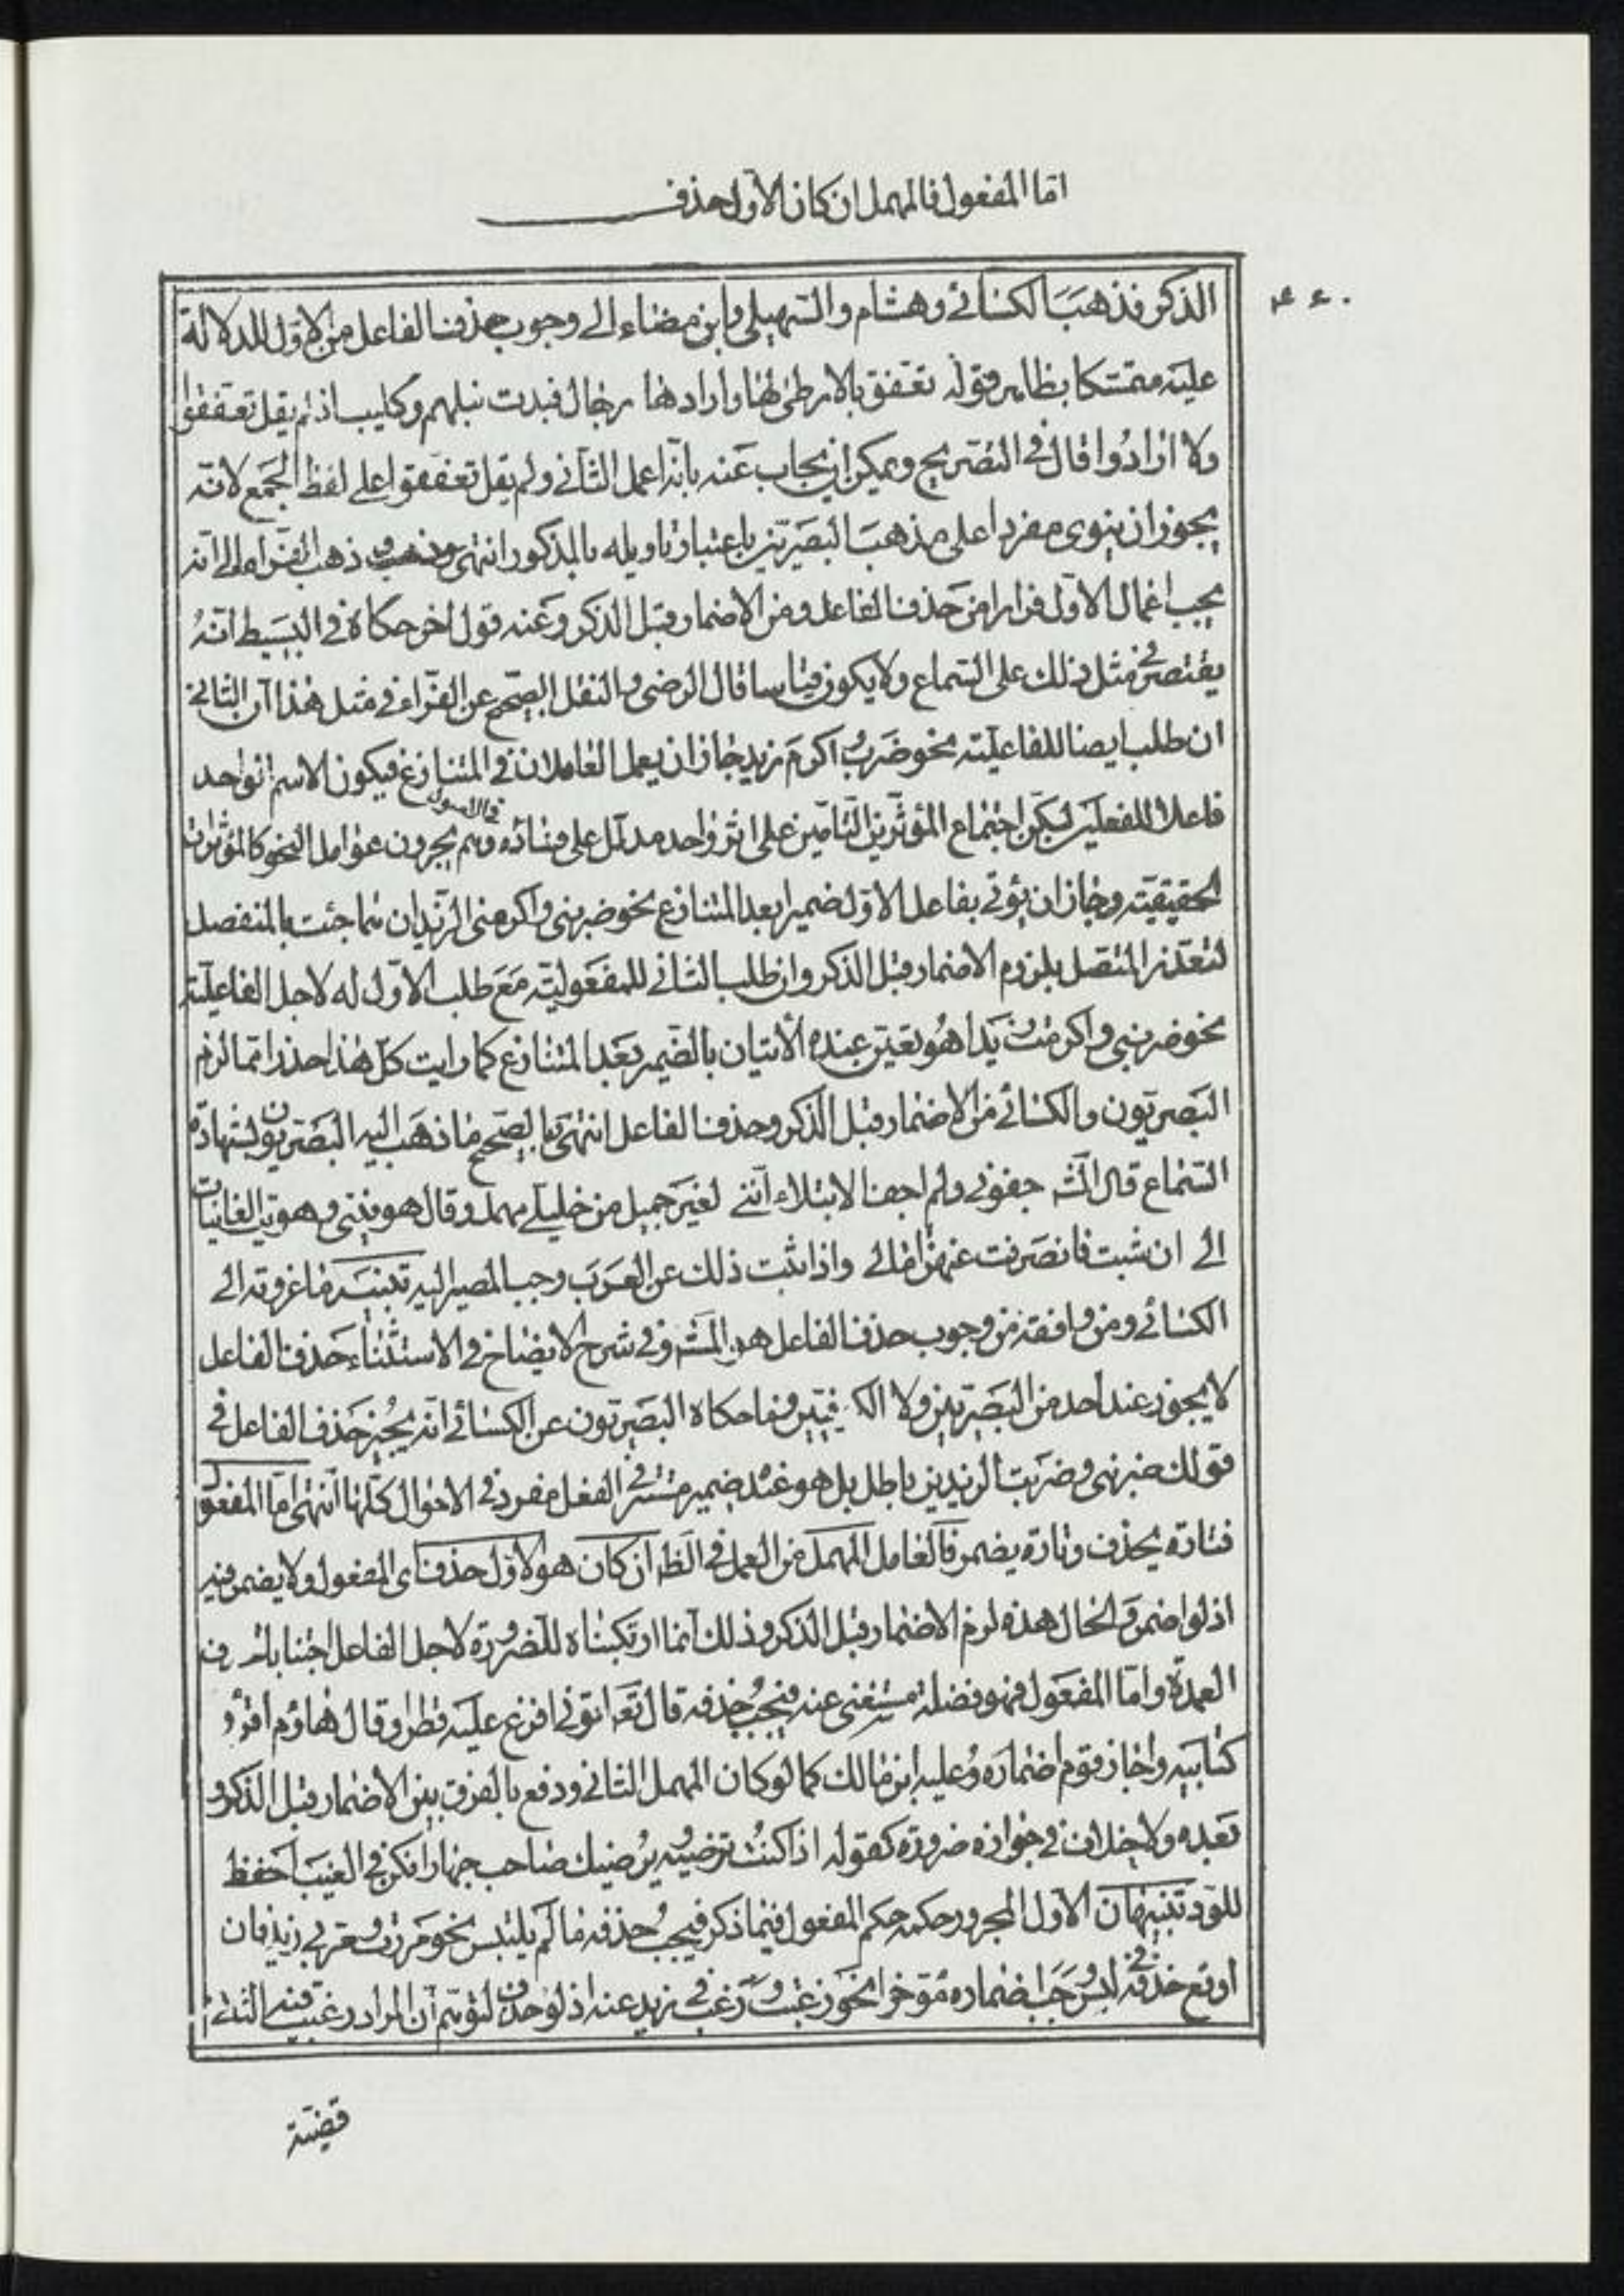 اما المفعول فالمهمل ان كان الاول حذف
الذكر فذهب الكسائي وهشام والسهيلي وابن مضاء الى وجوب حذف الفاعل من الاول للدلالة
عليه متمسكا بظاهر قوله تعفق بالارطى لها وارادها رجال فبذت نبلهم وكليب اذ لم يقل تعفقوا
ولا ارادوا قال في التصريح ويمكن ان يجاب عنه بانه اعمل الثاني ولم يقل تعفقوا على لفظ الجمع لانه
يجوز ان ينوى مفردا على مذهب البصريين باعتبار تاويله بالمذكور انتهى وذهب الفراء الى انه
يجب اعمال الاول فرارا من حذف الفاعل ومن الاضمار قبل الذكر وعنه قول اخر حكاه في البسيط انه
يقتصر في مثل ذلك على السماع ولا يكون قياسا قال الرضي والنقل الصحيح عن الفراء في مثل هذا ان الثاني
ان طلب ايضا للفاعلية نحو ضرب واكرم زيد جاز ان يعمل العاملان في المتنازع فيكون الاسم الواحد
فاعلا للفعلين لكن اجتماع المؤثرين التامين على اثر واحد مدلل على فساده في الاصول وهم يجرون عوامل النحو كالمؤثرات
الحقيقية وجاز ان يؤتى بفاعل الاول ضميرا بعد المتنازع نحو ضربني واكرمني الزيدان هما جئت بالمنفصل
لتعذر المتصل بلزوم الاضمار قبل الذكر وان طلب الثاني للمفعولية مع طلب الاول له لاجل الفاعلية
نحو ضربني واكرمت زيدا هو تعين عنده الاتيان بالضمير بعد المتنازع كما رايت كل هذا حذرا مما لزم
البصريون والكسائي من الاضمار قبل الذكر وحذف الفاعل انتهى والصحيح ما ذهب اليه البصريون لشهادة
السماع قال الش جفوني ولم اجف الاخلاء انني لغير جميل من خليلي مهمل وقال هوينني وهويت الغانيات
الى ان شبت فانصرفت عنهن امالي واذا ثبت ذلك عن العرب وجب المصير اليه تنبيه ما عزوته الى
الكسائي ومن وافقه من وجوب حذف الفاعل هو المش وفي شرح الايضاح في الاستثناء حذف الفاعل
لا يجوز عند احد من البصريين ولا الكوفيين وما حكاه البصريون عن الكسائي انه يجيز حذف الفاعل في
قولك ضربني وضربت الزيدين باطل بل هو عنده ضمير مستتر في الفعل مفرد في الاحوال كلها انتهى اما المفعول
فتارة يحذف وتارة يضمر فالعامل المهمل من العمل في الظ ان كان هو الاول حذف اى المفعول ولا يضمر فيه
اذ لو اضمر والحال هذه لزم الاضمار قبل الذكر وذلك انما ارتكبناه للضرورة لاجل الفاعل اجتنابا
العمدة واما المفعول فهو فضلة مستغنى عنه فيجب حذفه قال تعا اتوني افرغ عليه قطرا وقال هاؤم اقرؤ
كتابيه واجاز قوم اضماره وعليه ابن مالك كما لو كان المهمل الثاني ودفع بالفرق بين الاضمار قبل الذكر و
بعده ولا خلاف في جوازه ضرورة كقوله اذا كنت ترضيه ويرضيك صاحب جهارا فكن في الغيب احفظ
للود تنبيهان الاول المجرور حكمه حكم المفعول فيما ذكر فيجب حذفه ما لم يلتبس نحو مررت ومر بي زيد فان
اوقع حذفه في لبس وجب اضماره مؤخرا نحو رغبت ورغب في زيد عنه اذ لو حذف لتوهم ان المراد رغبت فيه الثاني
قضية